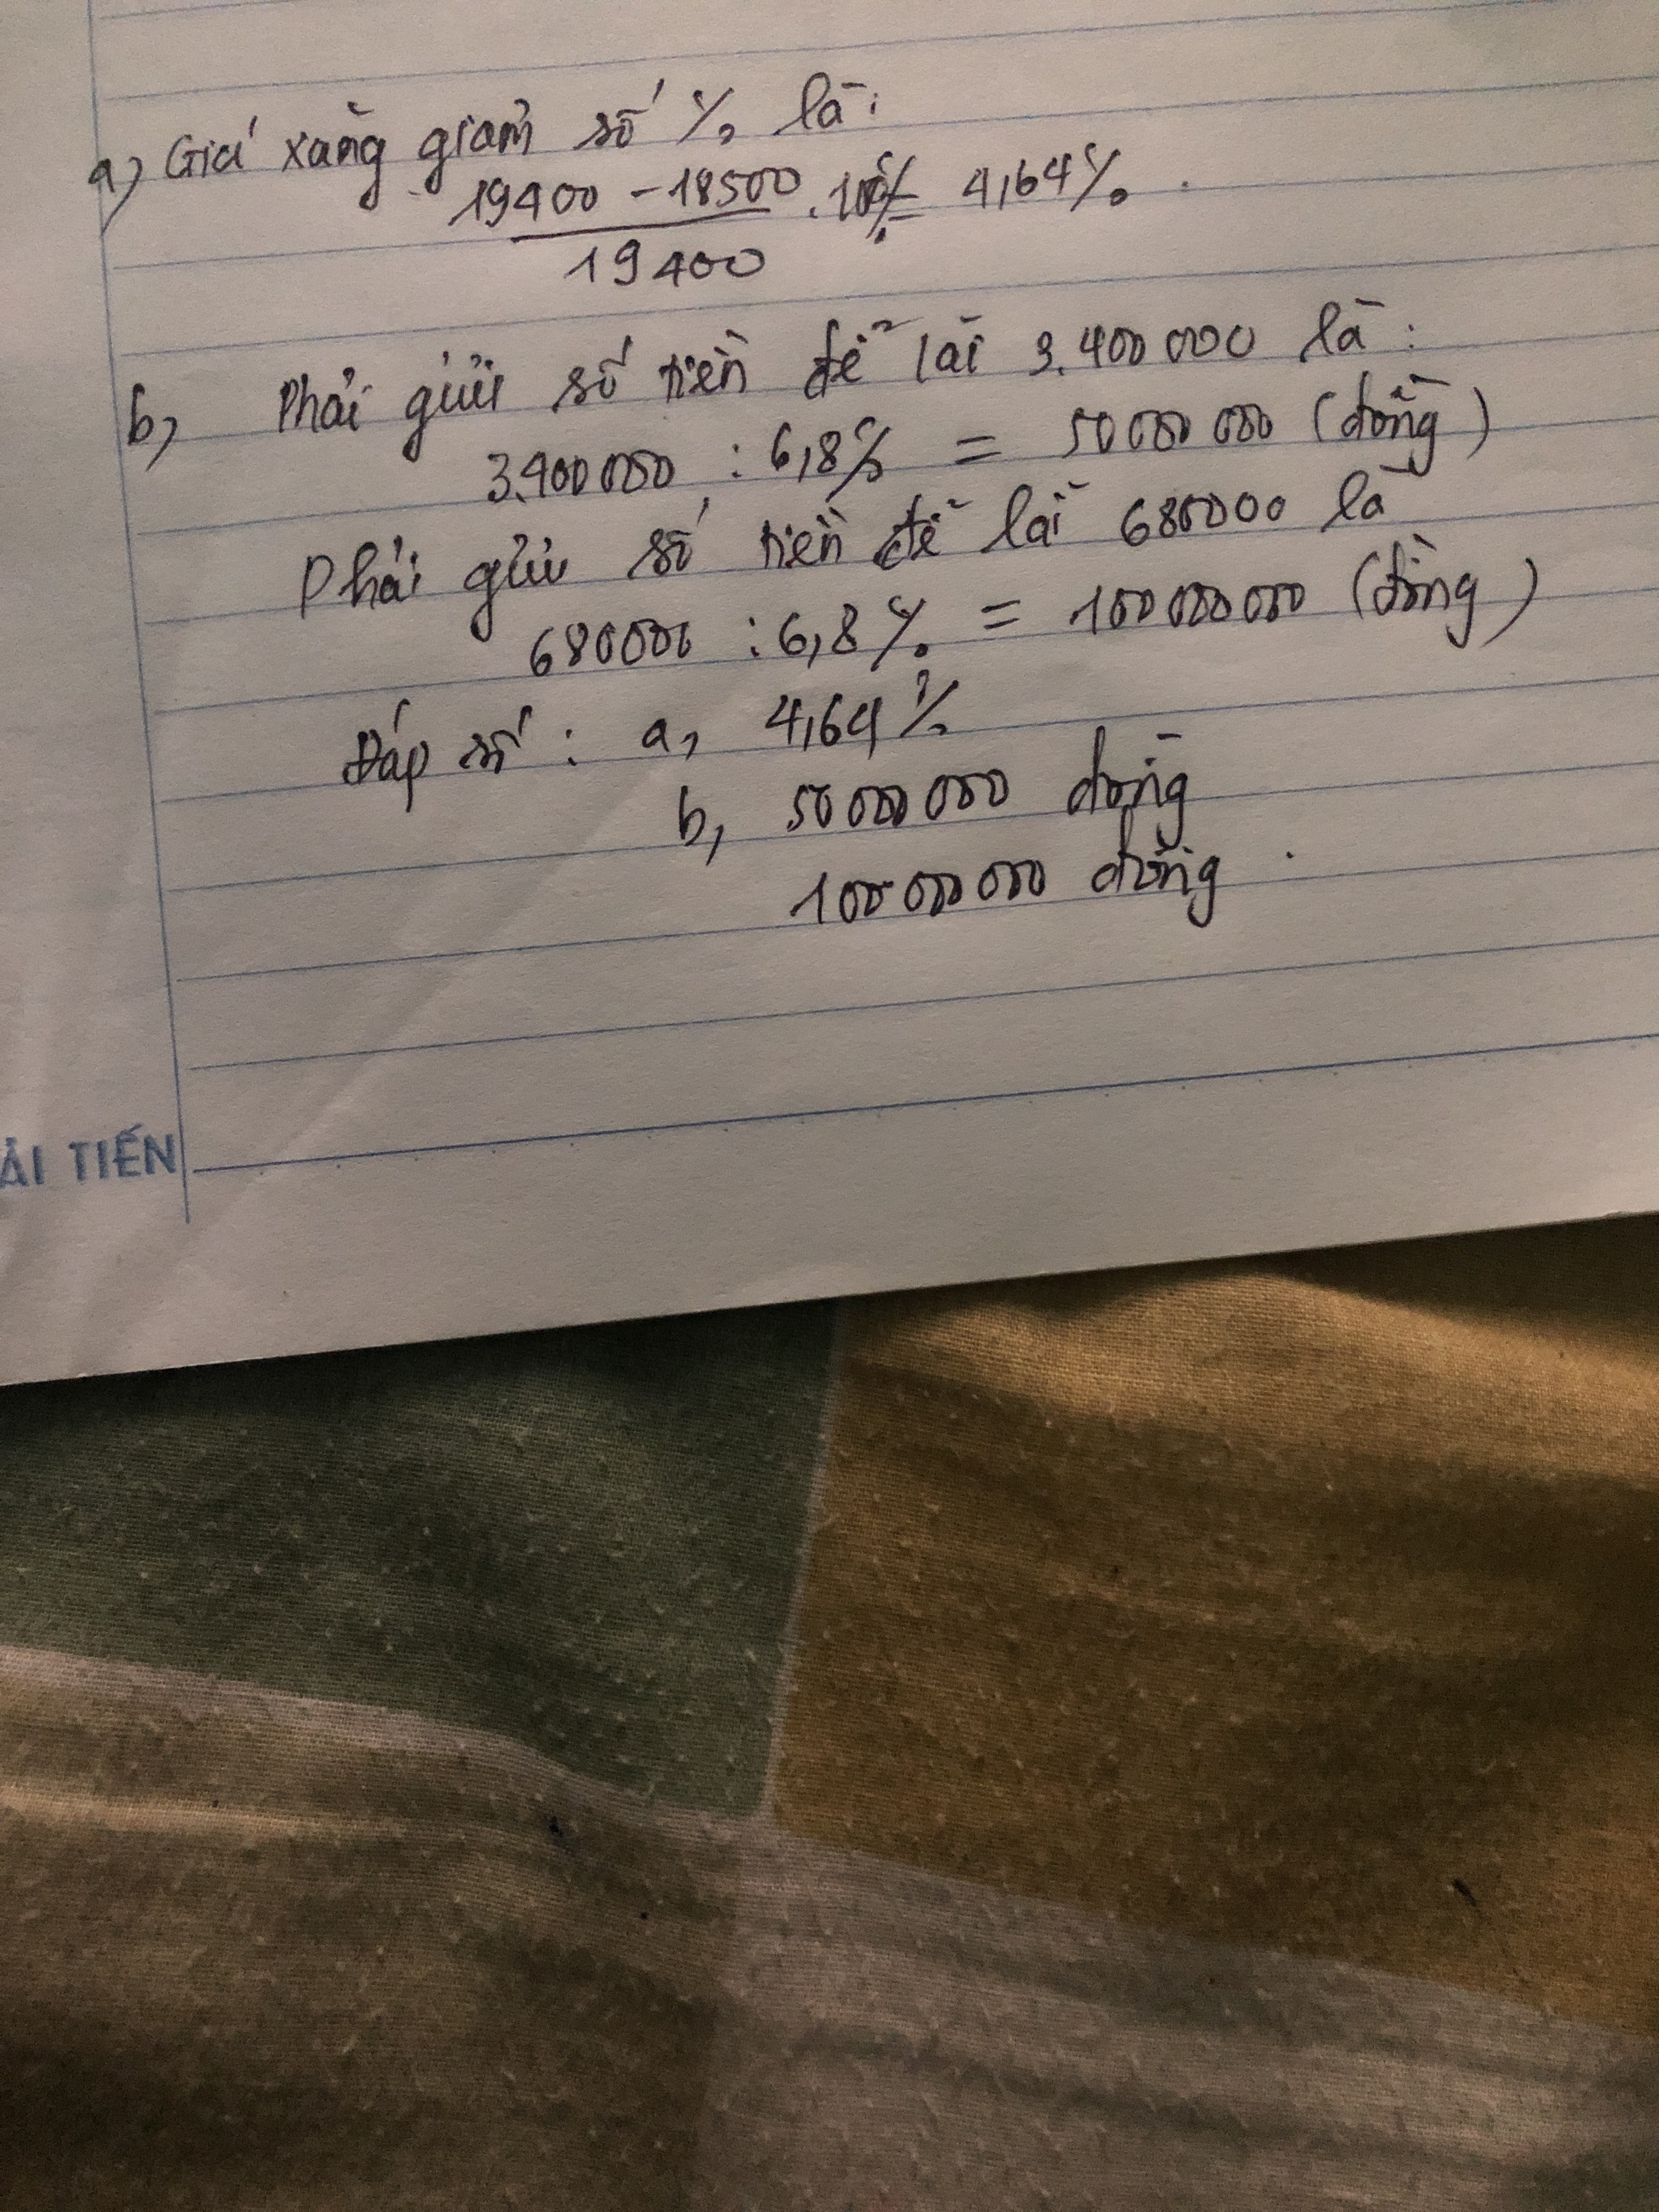 a, Giá xăng giảm số % là:
19400 - 18500 . 100% = 4,64%.
19400
b, Phải gửi số tiền để lãi 3.400 000 là:
3.400 000 : 6,8% = 50 000 000 (đồng)
Phải gửi số tiền để lãi 680000 là
680000 : 6,8% = 10 000 000 (đồng)
Đáp số: a, 4,64%
b, 50 000 000 đồng
10 000 000 đồng.
ẢI TIẾN